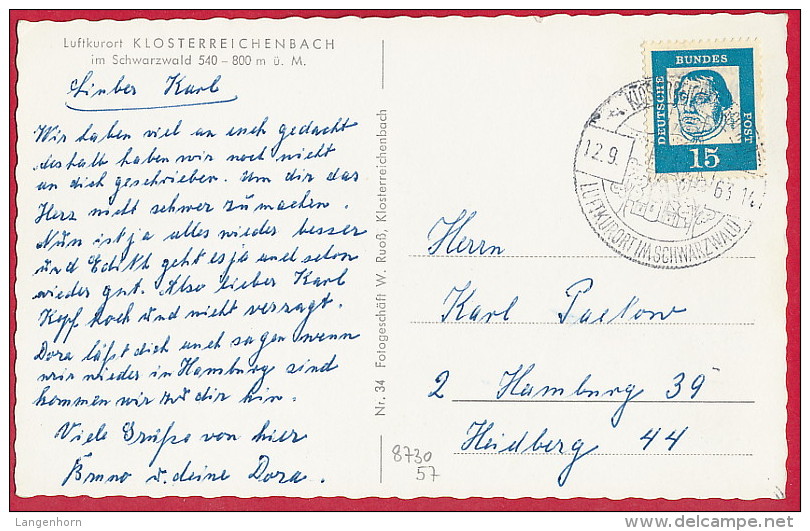 Luftkurort KLOSTERREICHENBACH
im Schwarzwald 540 – 800 m ü. M.
Lieber Karl
Wir haben viel an euch gedacht
deshalb haben wir noch nicht
an dich geschrieben. Um dir das
Herz nicht schwer zu machen.
Nun ist ja alles wieder besser
und Edith geht es ja auch schon
wieder gut. Also lieber Karl
Kopf hoch und nicht verzagt.
Dora läßt dich auch sagen wenn
wir wieder in Hamburg sind
kommen wir zu dir hin.
Viele Grüße von hier
Bruno u. deine Dora.
Nr. 34 Fotogeschäft W. Ruoß, Klosterreichenbach
DEUTSCHE
BUNDES
POST
15
12.9.63.14
LUFTKURORT IM SCHWARZWALD
Herrn
Karl
2 Hamburg 39
Heidberg 44
8730
57
Langenhorn
delcampe.net